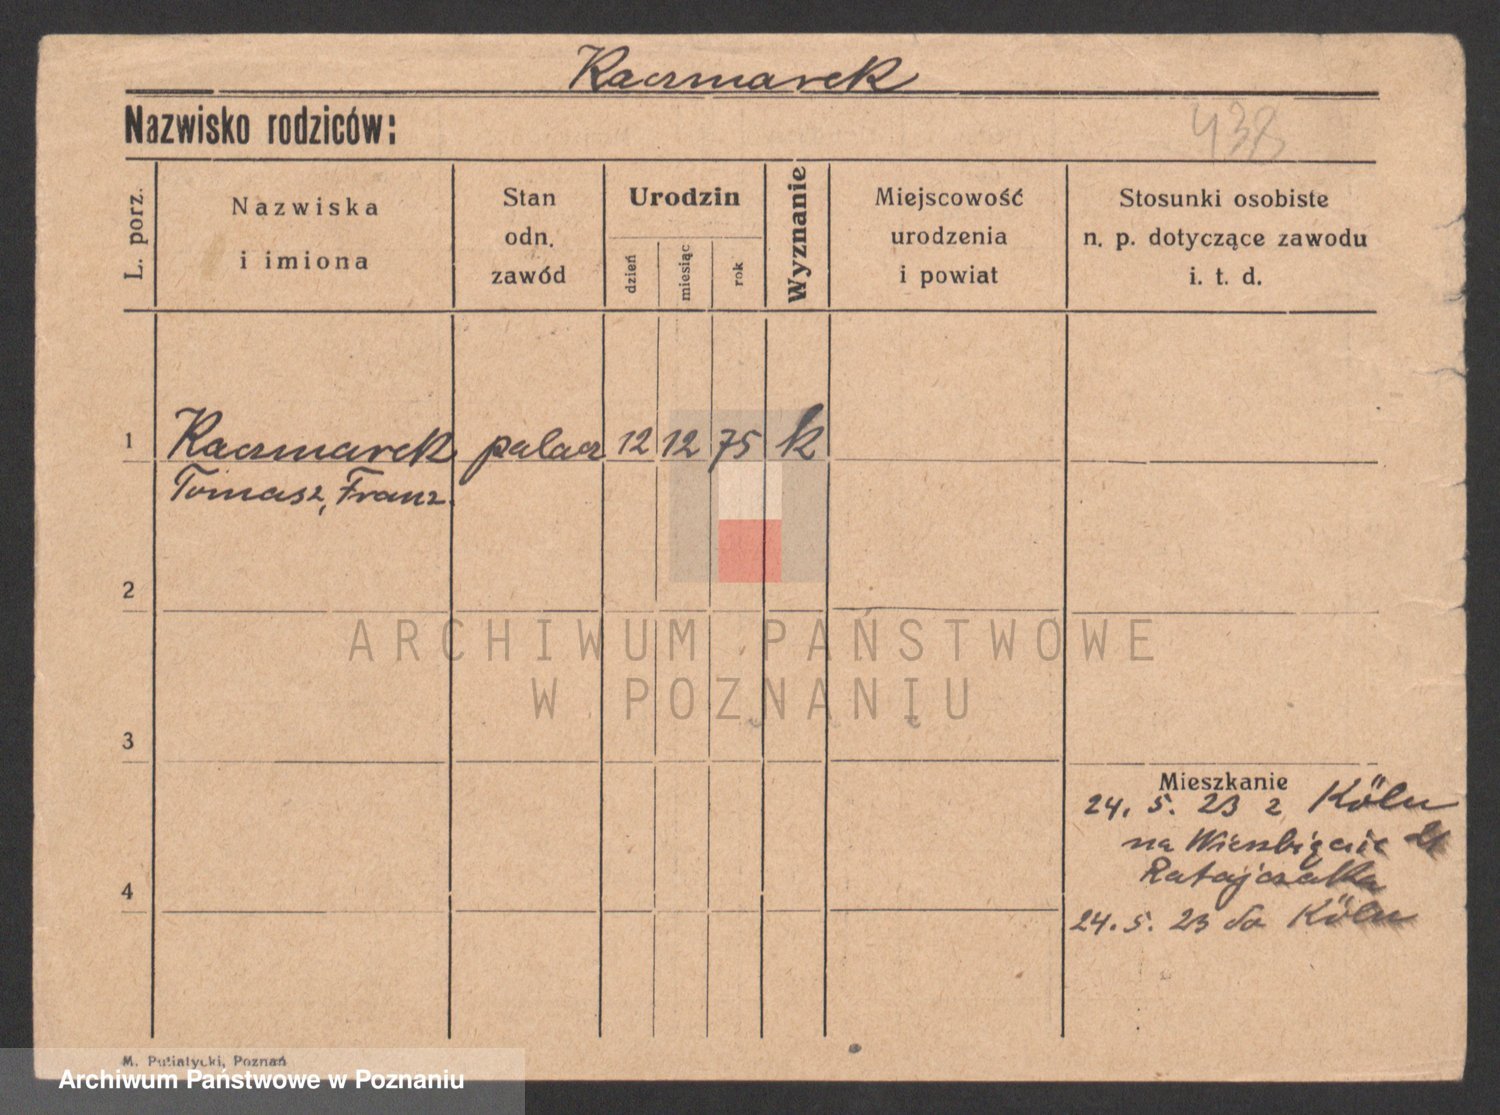 Kaczmarek
Nazwisko rodziców:
438
L. porz.
Nazwiska
i imiona
Stan
odn.
zawód
Urodzin
dzień
miesiąc
rok
Wyznanie
Miejscowość
urodzenia
i powiat
Stosunki osobiste
n. p. dotyczące zawodu
i. t. d.
1
Kaczmarek palacz 12 12 75 k
Tomasz, Franz.
2
ARCHIWUM PAŃSTWOWE
W POZNANIU
3
Mieszkanie
24. 5. 23 z Köln
na Wierzbięcie 21
Ratajczaka
4
24. 5. 23 do Köln
M. Putiatycki, Poznań
Archiwum Państwowe w Poznaniu